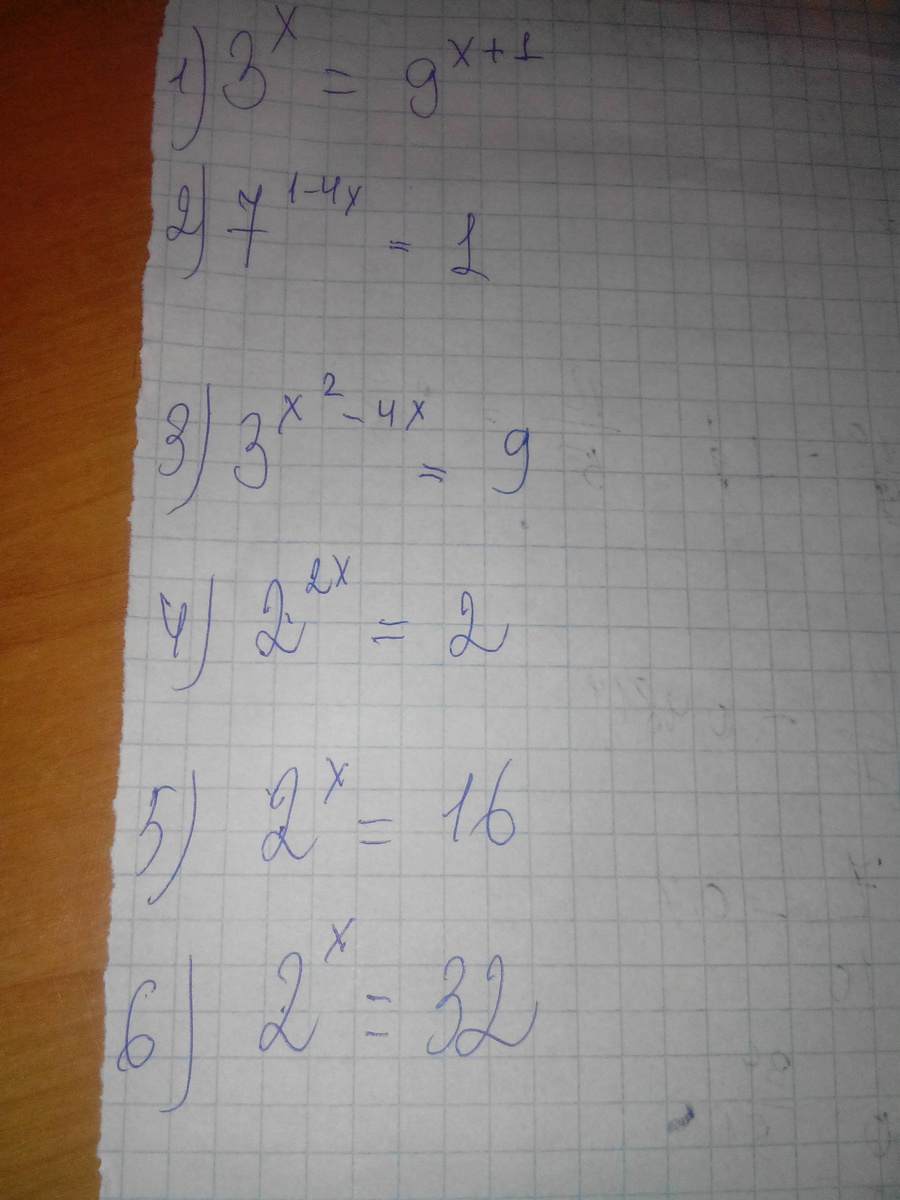 1) 3^x = 9^{x+1}
2) 7^{1-4x} = 1
3) 3^{x^2-4x} = 9
4) 2^{2x} = 2
5) 2^x = 16
6) 2^x = 32